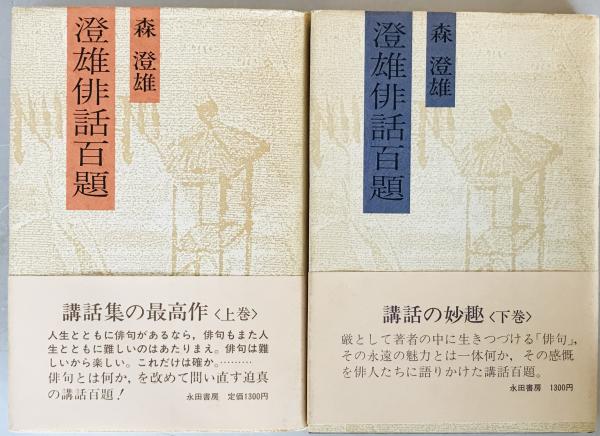 森 澄雄
澄雄俳話百題
講話集の最高作〈上巻〉
人生とともに俳句があるなら，俳句もまた人
生とともに難しいのはあたりまえ。俳句は難
しいから楽しい。これだけは確か。………
俳句とは何か，を改めて問い直す迫真
の講話百題！
永田書房 定価1300円
森 澄雄
澄雄俳話百題
講話の妙趣〈下巻〉
厳として著者の中に生きつづける「俳句」，
その永遠の魅力とは一体何か，その感慨
を俳人たちに語りかけた講話百題。
永田書房 1300円